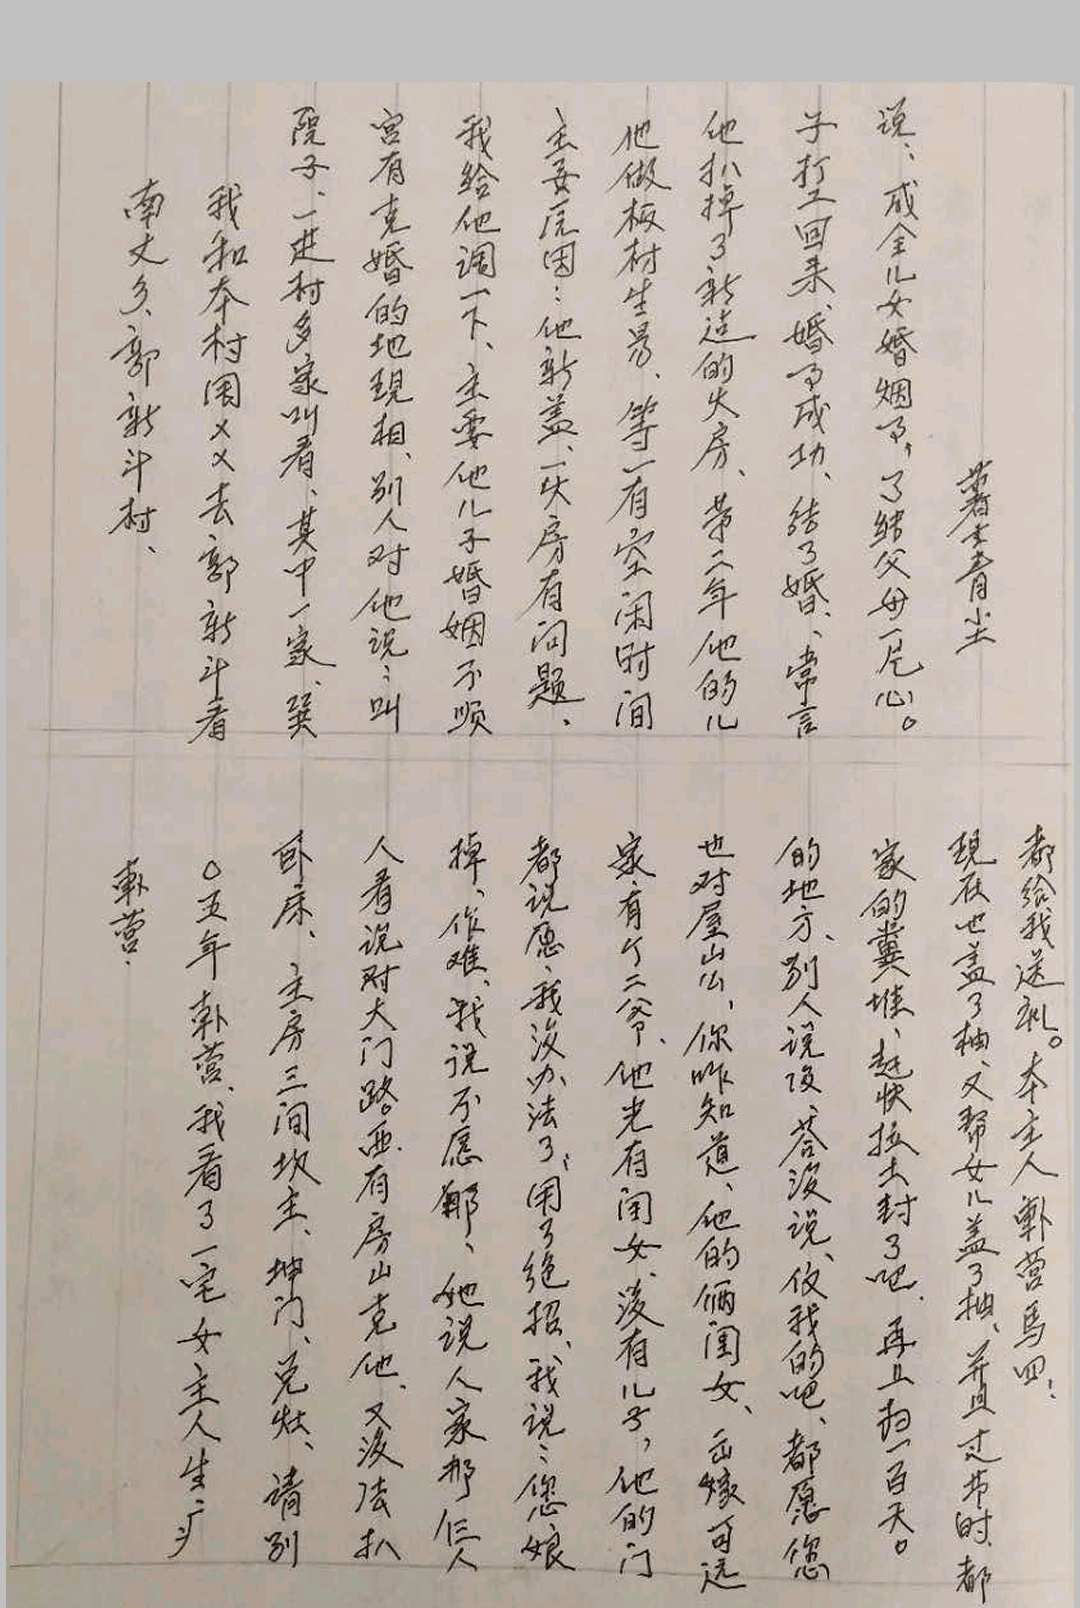 南丈乡、郭新斗村、
我和本村周××去郭新斗看
院子、一进村多家叫看、其中一家、巽
宫有克婚的地现相、别人对他说:叫
我给他调一下、主要他儿子婚姻不顺
主要原因:他新盖、一火房有问题、
他做板材生易、等一有空闲时间
他扒掉了新造的火房、第二年他的儿
子打工回来、婚事成功、结了婚、常言
说:成全儿女婚烟事,了结父母一片心。
著 青尘
营、
〇五年 营、我看了一宅女主人生疒
卧床、主房三间坎主、坤门、兑灶、请别
人看说对大门路西有房山克他、又没法扒
掉、作难、我说不愿 、她说人家那仨人
都说愿、我没办法了,用了绝招、我说:您娘
家有个二爷、他光有闺女、没有儿子,他的门
也对屋山 ,你咋知道、他的俩闺女、出嫁可远
的地方、别人说 、答没说、依我的吧、都愿您
家的粪堆、赶快拉土封了吧、再且扫一百天。
现在也盖了 、又帮女儿盖了 、并且过节时、都
都给我送礼。本主人 营馬四: